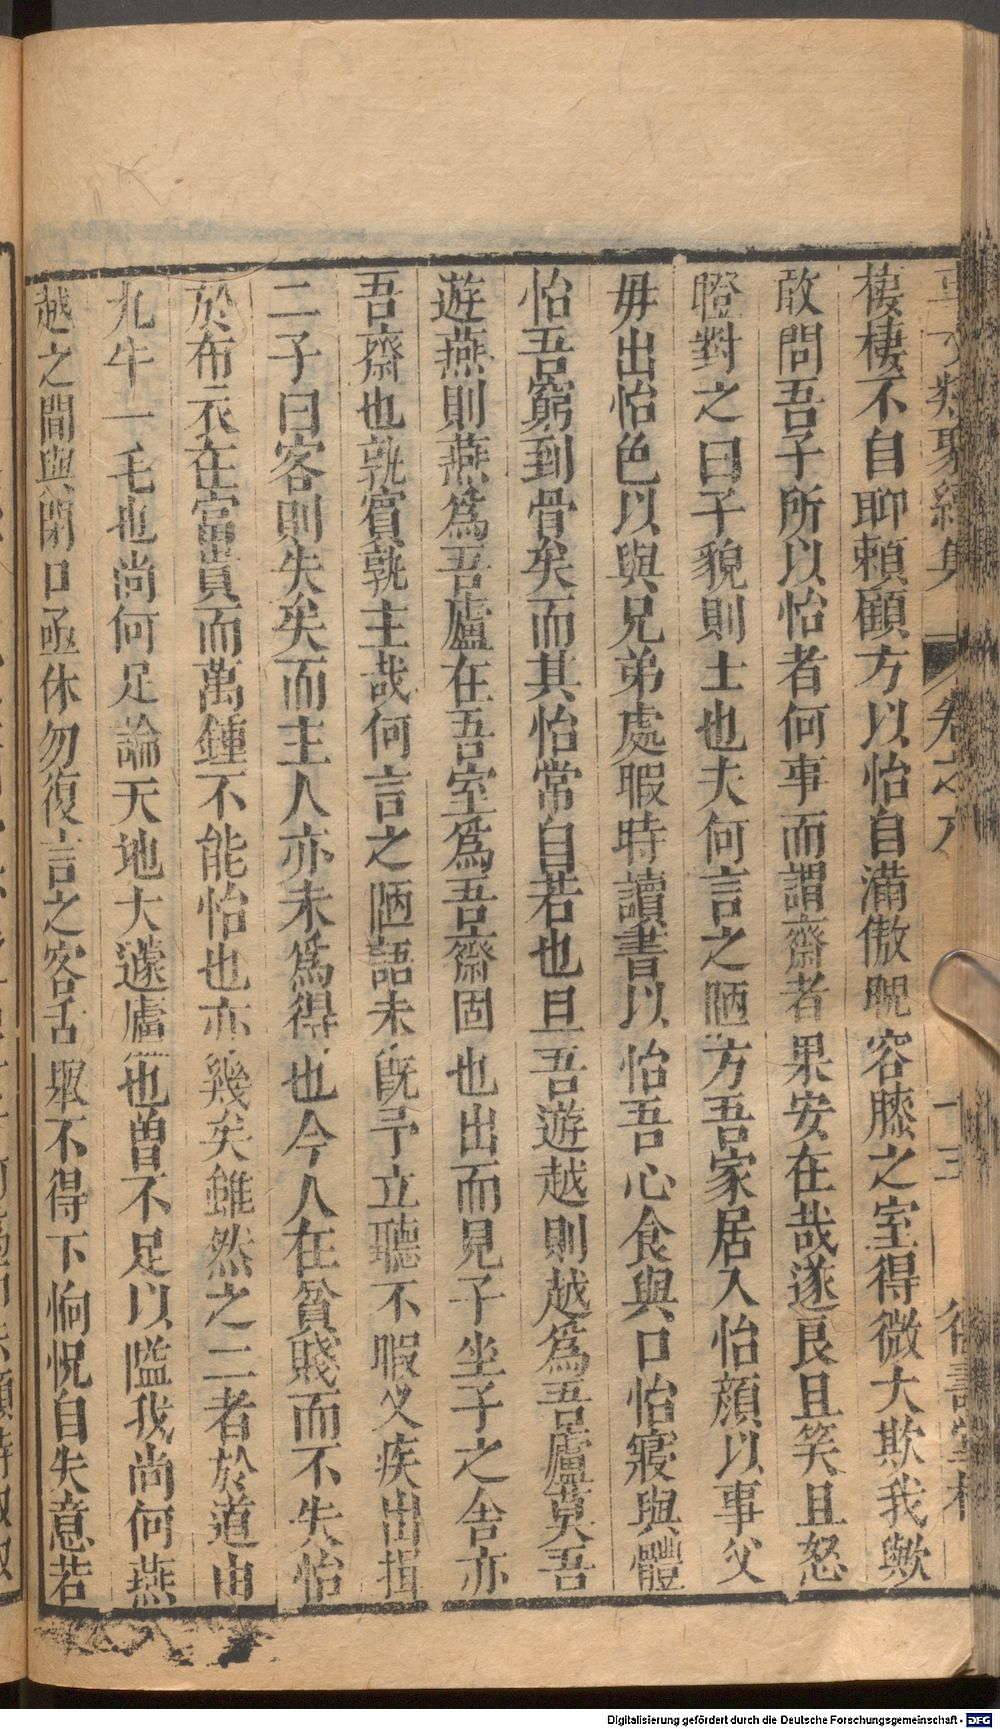 事文類聚續集 卷之八 十三 德壽堂梓
棲棲不自聊賴顧方以怡自滿傲睨容膝之室得微大欺我歟
敢問吾子所以怡者何事而謂齋者果安在哉遂艮且笑且怒
瞪對之曰子貌則士也夫何言之陋方吾家居入怡顏以事父
毋出怡色以與兄弟處暇時讀書以怡吾心食與口怡寢與體
怡吾窮到骨矣而其怡常自若也且吾遊越則越爲吾廬莫吾
遊燕則燕爲吾廬在吾室爲吾齋固也出而見子坐子之舍亦
吾齋也孰賓孰主哉何言之陋語未既予立聽不暇叉疾出揖
二子曰客則失矣而主人亦未爲得也今人在貧賤而不失怡
於布衣在富貴而萬鍾不能怡也亦幾矣雖然之二者於道由
九牛一毛也尚何足論天地大蘧廬也曽不足以隘我尚何燕
越之間與閉口亟休勿復言之客舌取不得下恟怳自失意若